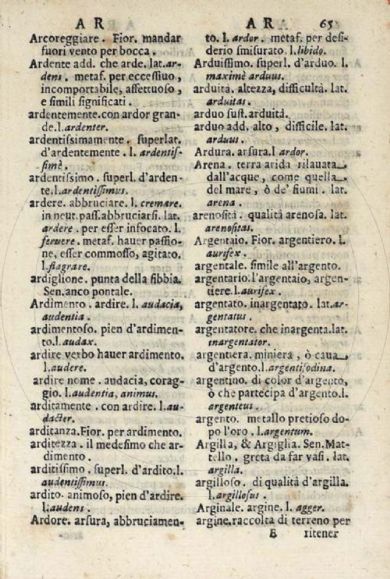 A R
Arcoreggiare. Fior. mandar
fuori vento per bocca.
Ardente add. che arde. lat. ar-
dens. metaf. per eccessiuo,
incomportabile, affettuoso,
e simili significati.
ardentemente. con ardor gran-
de. l. ardenter.
ardentissimamente. superlat.
d'ardentemente. l. ardentis-
simè.
ardentissimo. superl. d'arden-
te. l. ardentissimus.
ardere. abbruciare. l. cremare.
in neut. pass. abbruciarsi. lat.
ardere. per esser infocato. l.
feruere. metaf. hauer passio-
ne, esser commosso, agitato.
l. flagrare.
ardiglione. punta della fibbia.
Sen. anco pontale.
Ardimento. ardire. l. audacia,
audentia.
ardimentoso. pien d'ardimen-
to. l. audax.
ardire verbo hauer ardimento.
l. audere.
ardire nome. audacia, corag-
gio. l. audentia, animus.
arditamente. con ardire. l. au-
dacter.
arditanza. Fior. per ardimento.
arditezza. il medesimo che ar-
dimento.
arditissimo. superl. d'ardito. l.
audentissimus.
ardito. animoso, pien d'ardire.
l. audens.
Ardore. arsura, abbruciamen-
A R 65
to. l. ardor. metaf. per desi-
derio smisurato. l. libido.
Arduissimo. superl. d'arduo. l.
maximè arduus.
arduità. altezza, difficultà. lat.
arduitas.
arduo sust. arduità.
arduo add. alto, difficile. lat.
arduus.
Ardura. arsura. l. ardor.
Arena. terra arida rilauata
dall'acque, come quella
del mare, ò de' fiumi. lat.
arena.
arenosità. qualità arenosa. lat.
arenositas.
Argentaio. Fior. argentiero. l.
aurifex.
argentale. simile all'argento.
argentario. l'argentaio, argen-
tiere. l. aurifex.
argentato. inargentato. lat. ar-
gentatus.
argentatore. che inargenta. lat.
inargentator.
argentiera. miniera, ò caua
d'argento. l. argentifodina.
argentino. di color d'argento,
ò che partecipa d'argento. l.
argenteus.
argento. metallo pretioso do-
po l'oro. l. argentum.
Argilla, & Argiglia. Sen. Mat-
tello. greta da far vasi. lat.
argilla.
argilloso. di qualità d'argilla.
l. argillosus.
Arginale. argine. l. agger.
argine. raccolta di terreno per
E ritener